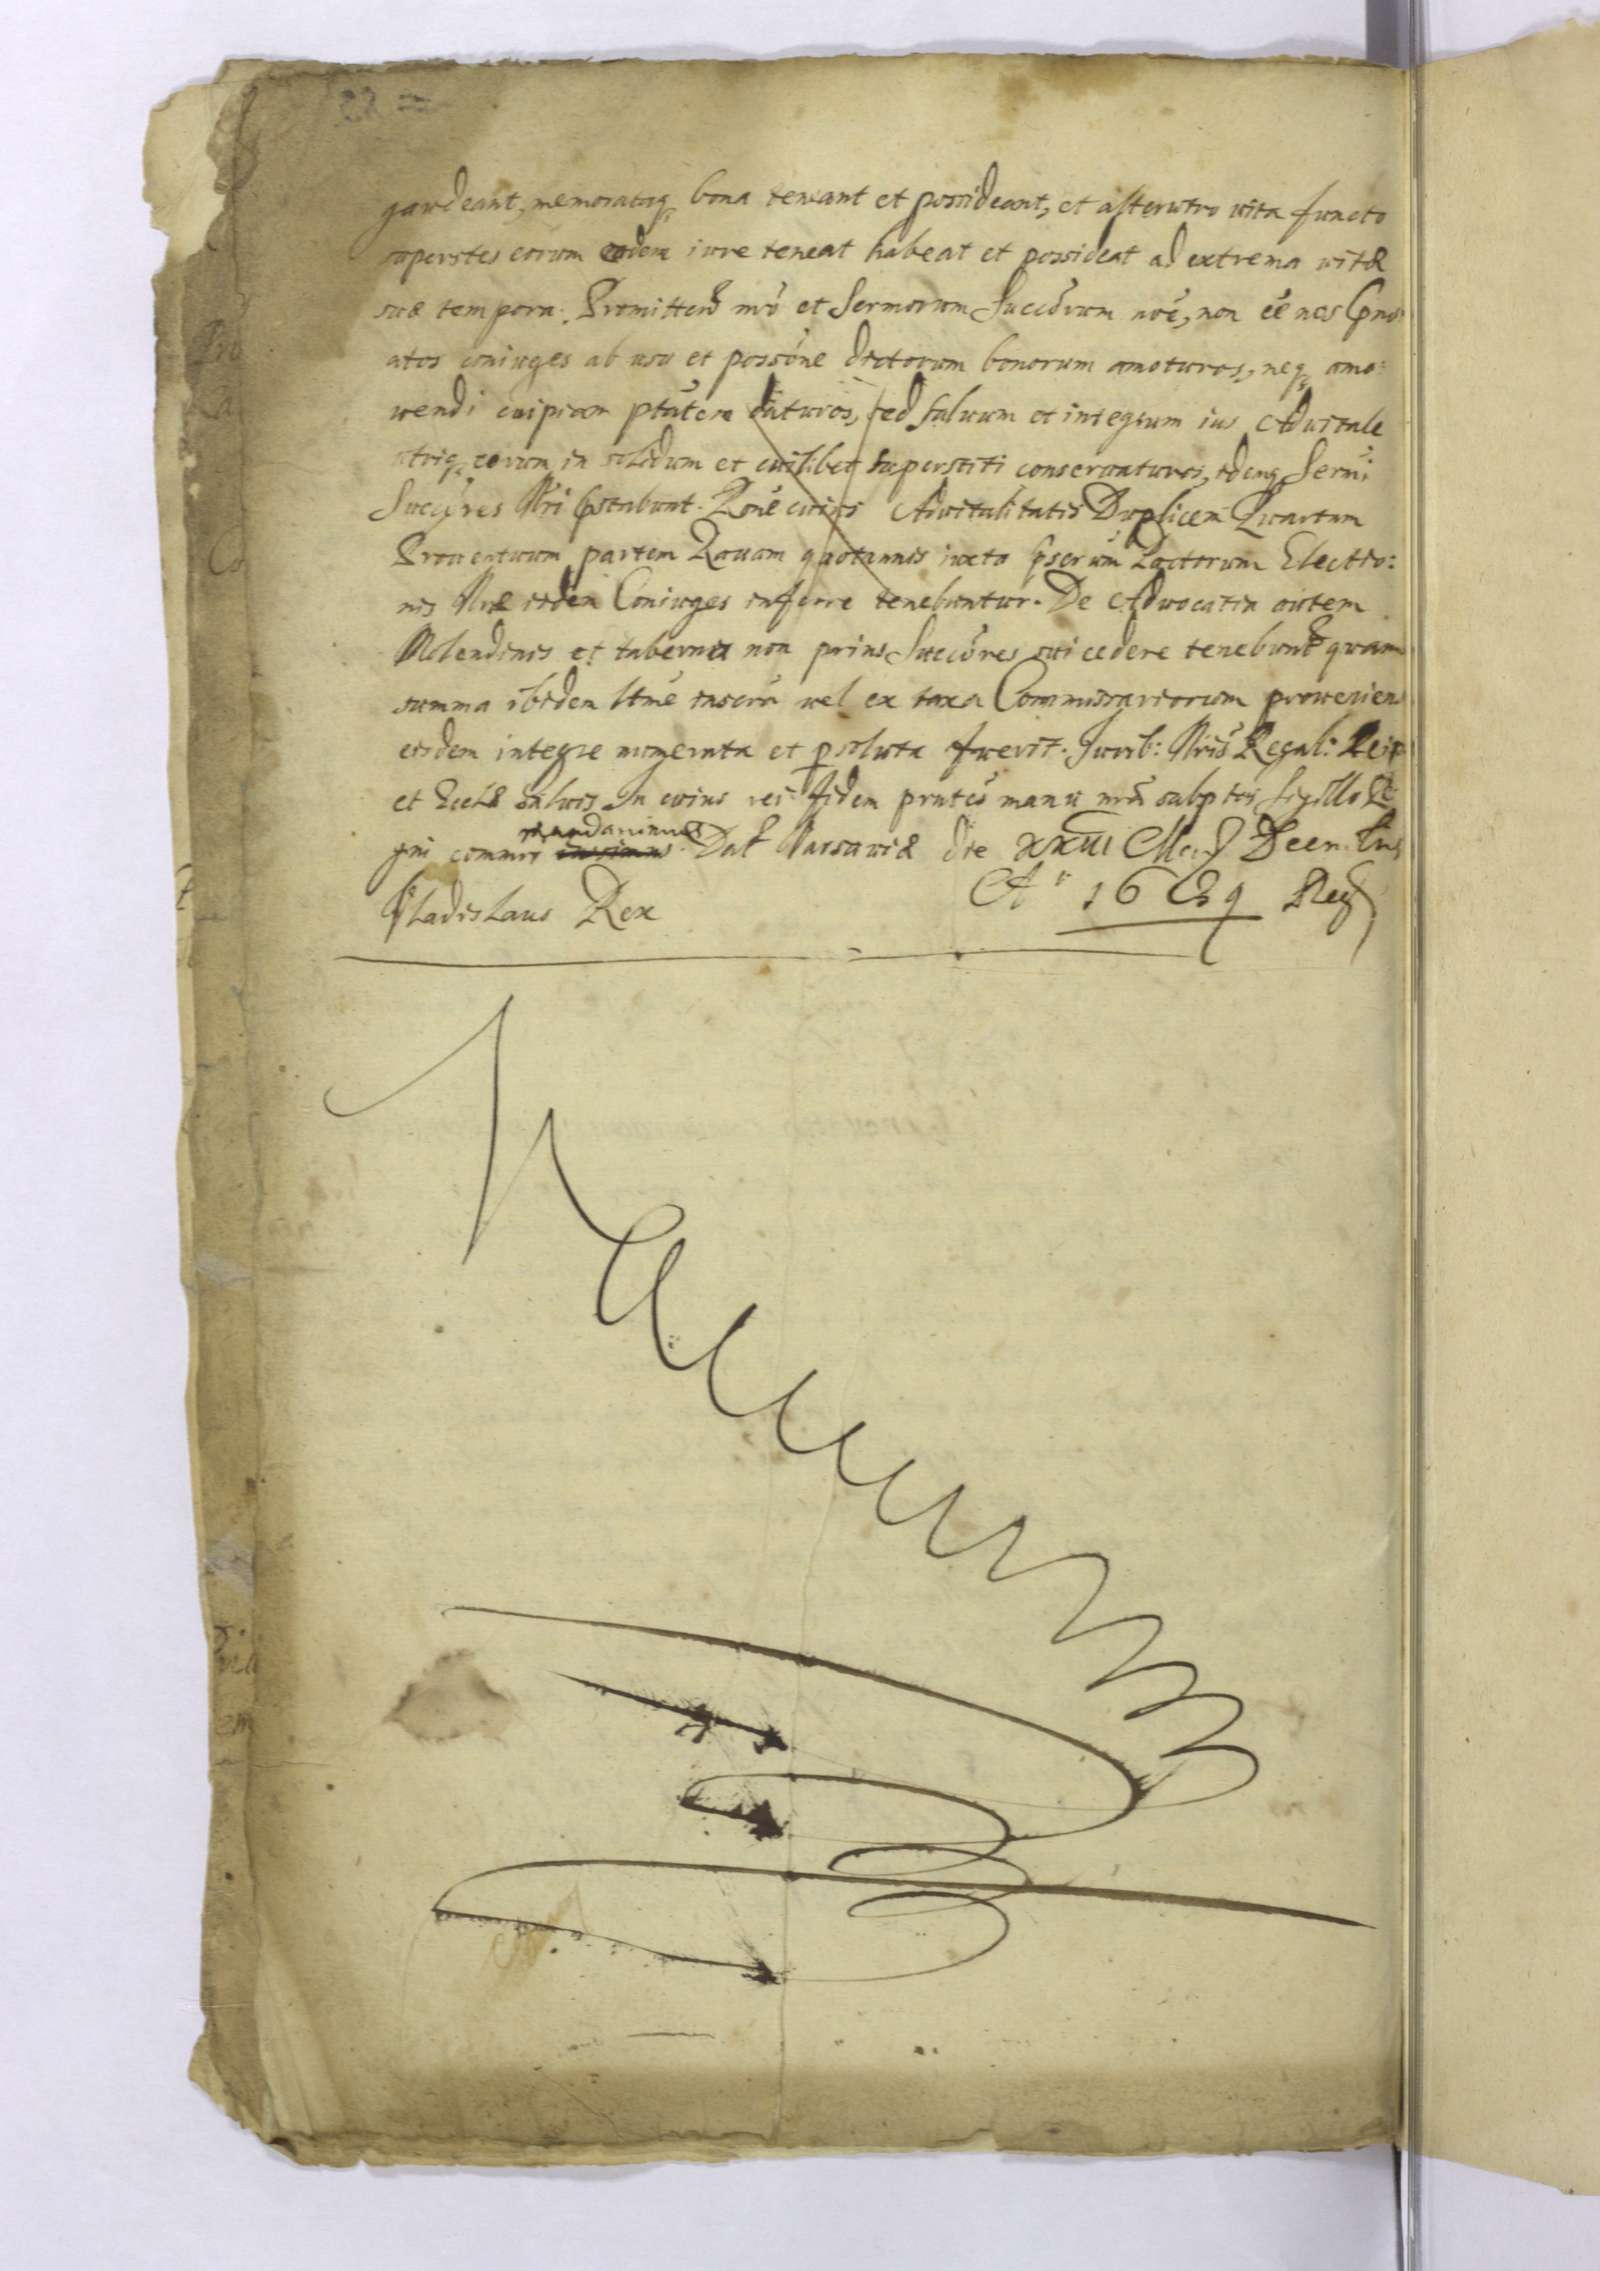 gaudeant, memorataq bona teneant et possideant, et alterutro vita functo
superstes eorum eodem iure teneat habeat et possideat ad extrema vitæ
suæ tempora. Promitten mo et Sermorum Succorum noe, non ee nos
atos coniuges ab usu et possone dictorum bonorum amoturos, neq amo:
vendi cuipiam ptatem daturos, sed salvum et integrum ius Advitale
utriq eorum in solidum et cuilibet superstiti conservaturos, idemq Sermi
Succores Nri pstabunt. Rone cuius Advitalitatis Duplicem Quartam
Proventuum partem Novam quotannis iuxta Pactorum Electio:
nis Nræ iidem Coniuges inferre tenebuntur. De Advocatia autem
Molendinis et taberna non prius Succores sui cedere tenebunt quam
summa ibidem ltme inscra vel ex taxa Commissariorum provenien
eisdem integre numerata et psoluta fuerit. Iurib: Nris Regal: Reip
et Eccliæ salvis In cuius rei fidem pntes manu nra subptas sigillo Re
gni commir mandavimus Dat Varsaviæ die XXIII
Vladislaus Rex Ao 1639 Reg